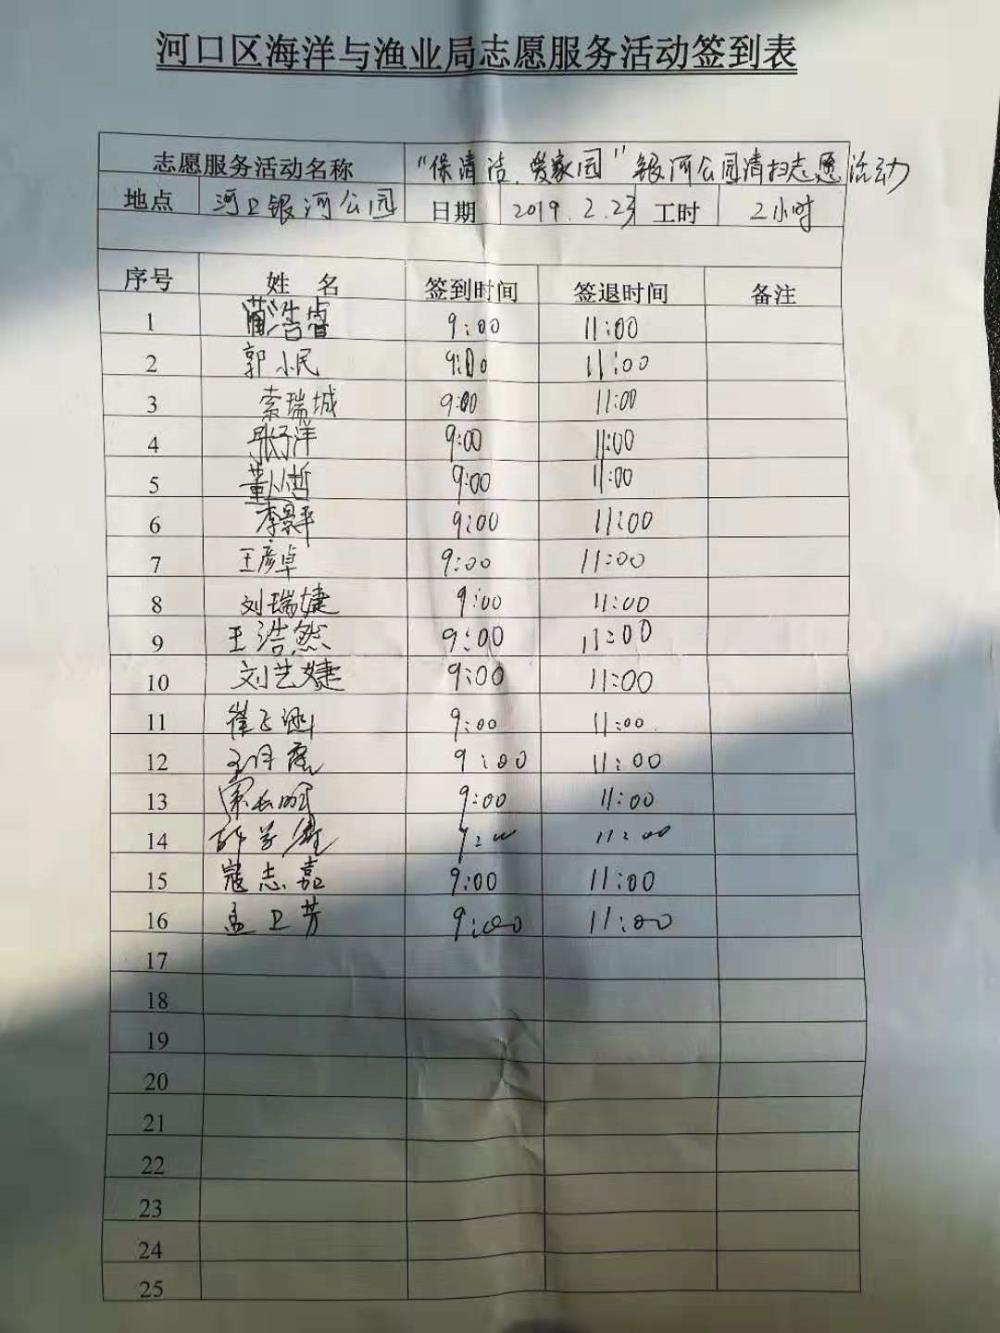 河口区海洋与渔业局志愿服务活动签到表
志愿服务活动名称 "保清洁、爱家园"银河公园清扫志愿活动
地点 河口银河公园 日期 2019.2.23 工时 2小时
序号 姓 名 签到时间 签退时间 备注
1 蔺浩睿 9:00 11:00
2 郭小民 9:00 11:00
3 索瑞城 9:00 11:00
4 张予洋 9:00 11:00
5 董从哲 9:00 11:00
6 李景平 9:00 11:00
7 王彦卓 9:00 11:00
8 刘瑞婕 9:00 11:00
9 王浩然 9:00 11:00
10 刘艺婕 9:00 11:00
11 崔 9:00 11:00
12 9:00 11:00
13 9:00 11:00
14 11:00
15 寇志嘉 9:00 11:00
16 孟卫芳 9:00 11:00
17
18
19
20
21
22
23
24
25